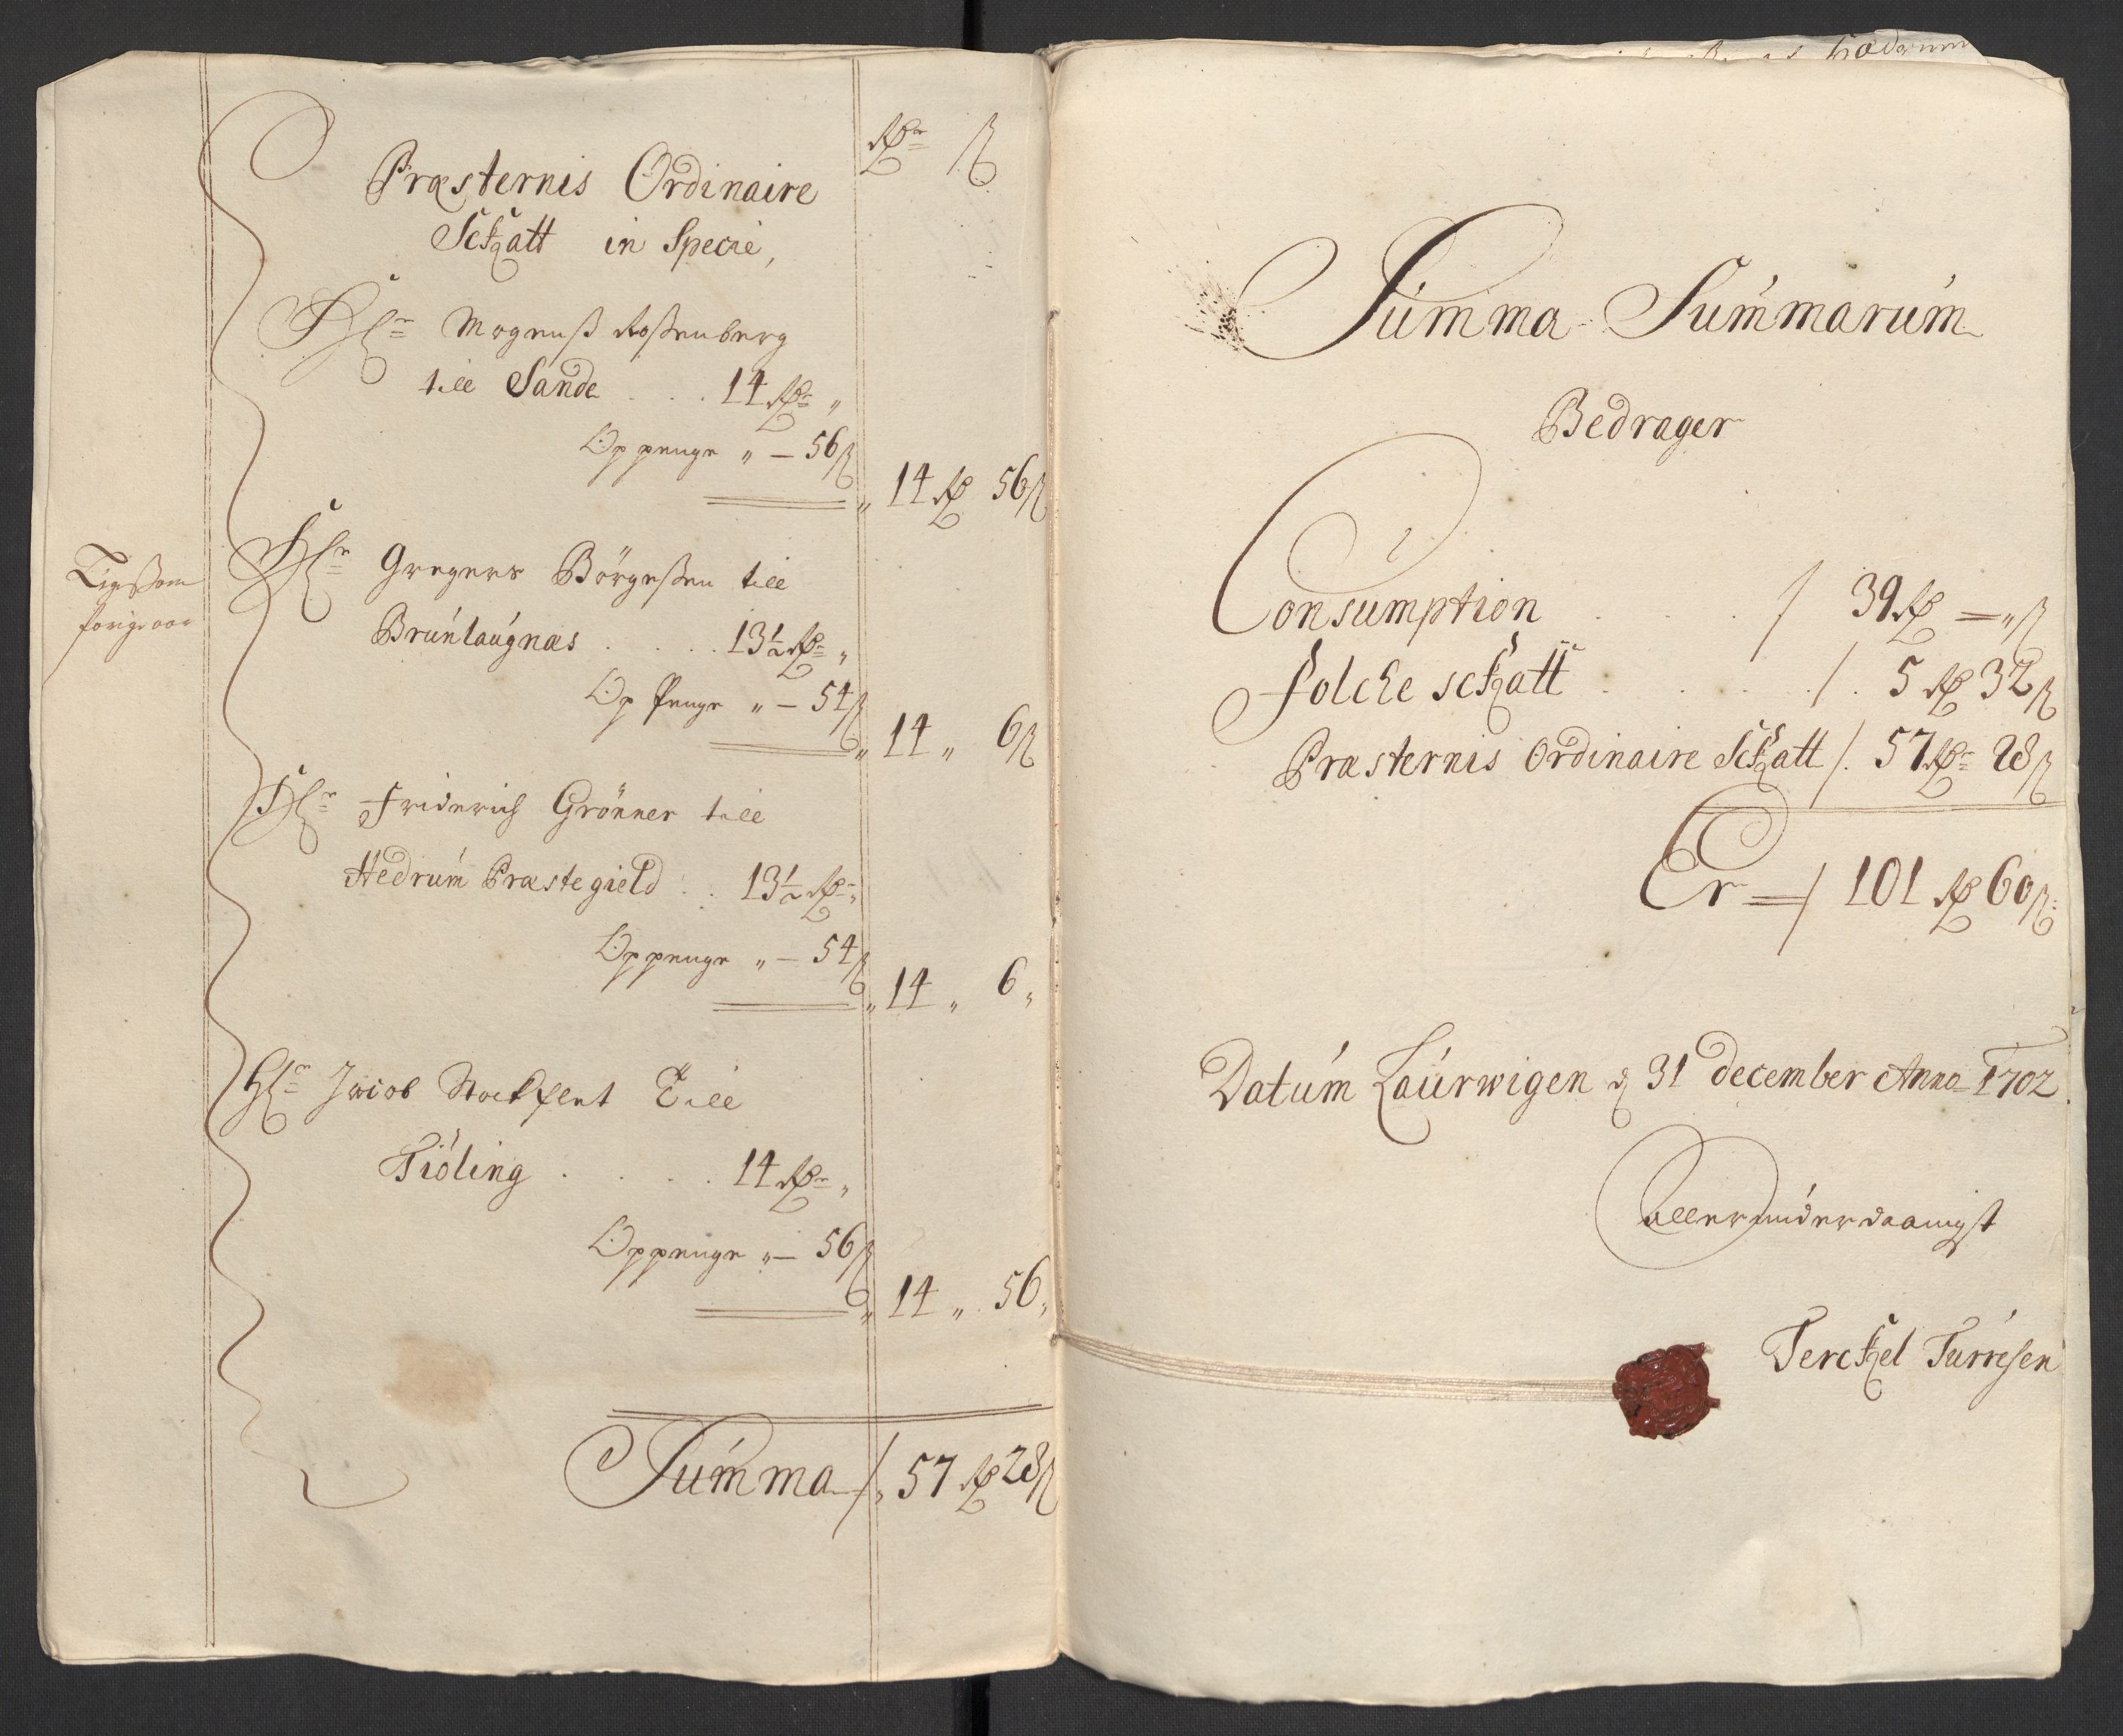 Rdr ß
Præsternis Ordinaire
Schatt in Specie,
Hr Mogenß Roßenberg
till Sande . . . 14 Rdr „
Oppenge „ — 56 ß
„ 14 Rd 56 ß
Ligesom
forige aar
Hr Gregers Börgeßen till
Brúnlaúgnæs . . . . 13½ Rdr „
Op Penge „ — 54 ß
„ 14 „ 6 ß
Hr Friderich Grönner till
Hedrúm Præstegield . . 13½ Rdr „
Oppenge „ — 54 ß
„ 14 „ 6 „
Hr Jacob Stockflet Till
Tiöling . . . . 14 Rdr „
Oppenge „ — 56 ß
„ 14 „ 56 „
Súmma / „ 57 Rd 28 ß
Súmma Súmmarúm
Bedrager
Consumption . . . / 39 Rd — „ ß
Folcke schatt . . . . / . 5 Rd 32 ß
Præsternis Ordinaire Schatt / . 57 Rdr 28 ß
Er — / 101 Rd 60 ß
Datúm Laúrwigen d 31 december Anno 1702.
allerunderdaanigst
Terchel Túrresen